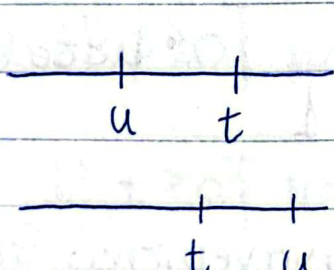 u t
t u